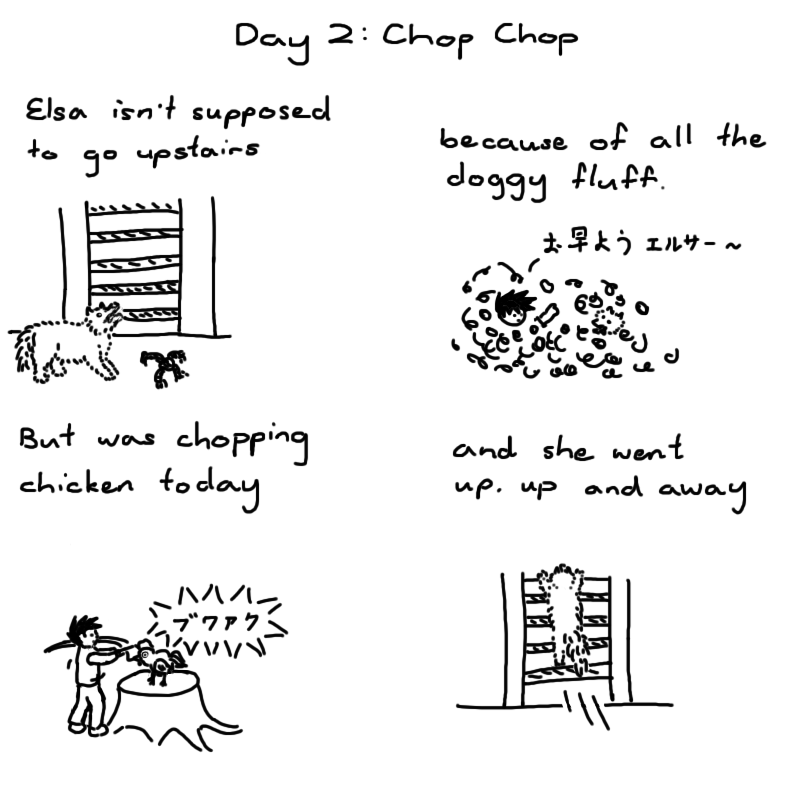 Day 2: Chop Chop
Elsa isn't supposed
to go upstairs
because of all the
doggy fluff.
お早よう エルサー～
But was chopping
chicken today
ブワァク
and she went
up. up and away